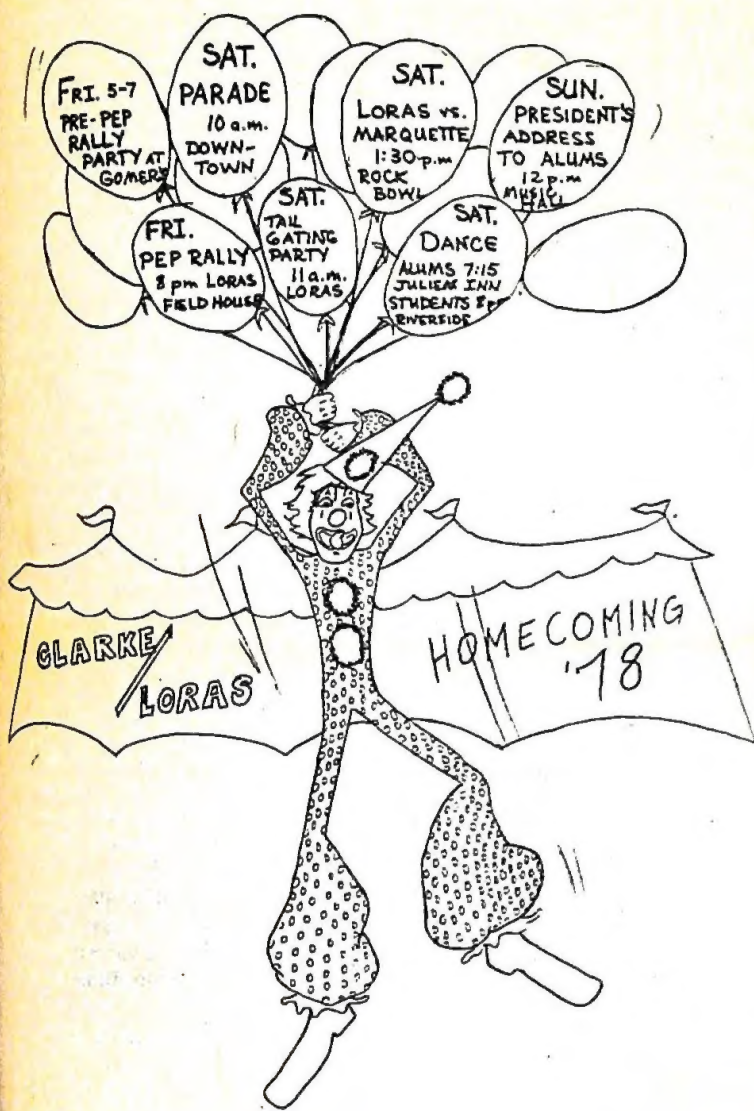 FRI. 5-7
PRE-PEP
RALLY
PARTY AT
GOMERS
SAT.
PARADE
10 a.m.
DOWN-
TOWN
SAT.
LORAS vs.
MARQUETTE
1:30 p.m
ROCK
BOWL
SUN.
PRESIDENT'S
ADDRESS
TO ALUMS
12 p.m
MUSIC
HALL
FRI.
PEP RALLY
8 pm LORAS
FIELD HOUSE
SAT.
TAIL
GATING
PARTY
11 a.m.
LORAS
SAT.
DANCE
ALUMS 7:15
JULIEN INN
STUDENTS 8 pm
RIVERSIDE
CLARKE/
LORAS
HOMECOMING
'78